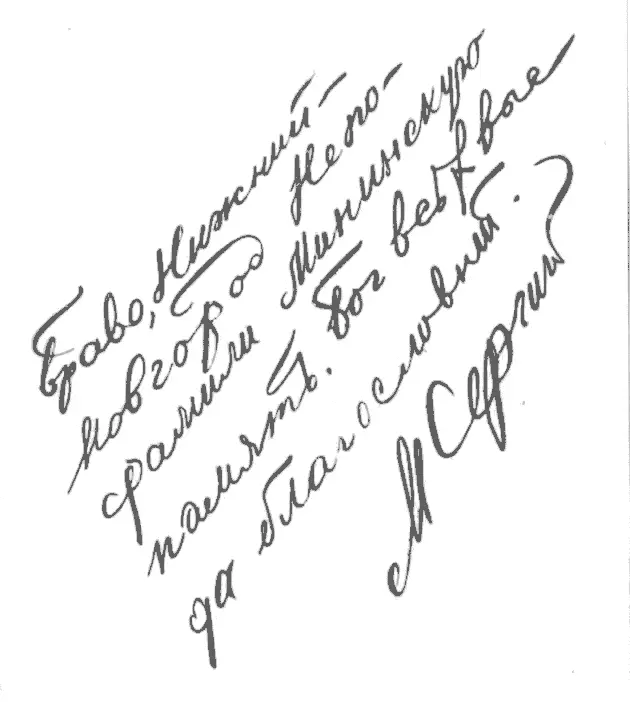 Браво, Нижний-
новгород Непо-
срамили Мининскую
память. Бог всѣх
да благословит.
М Сергий